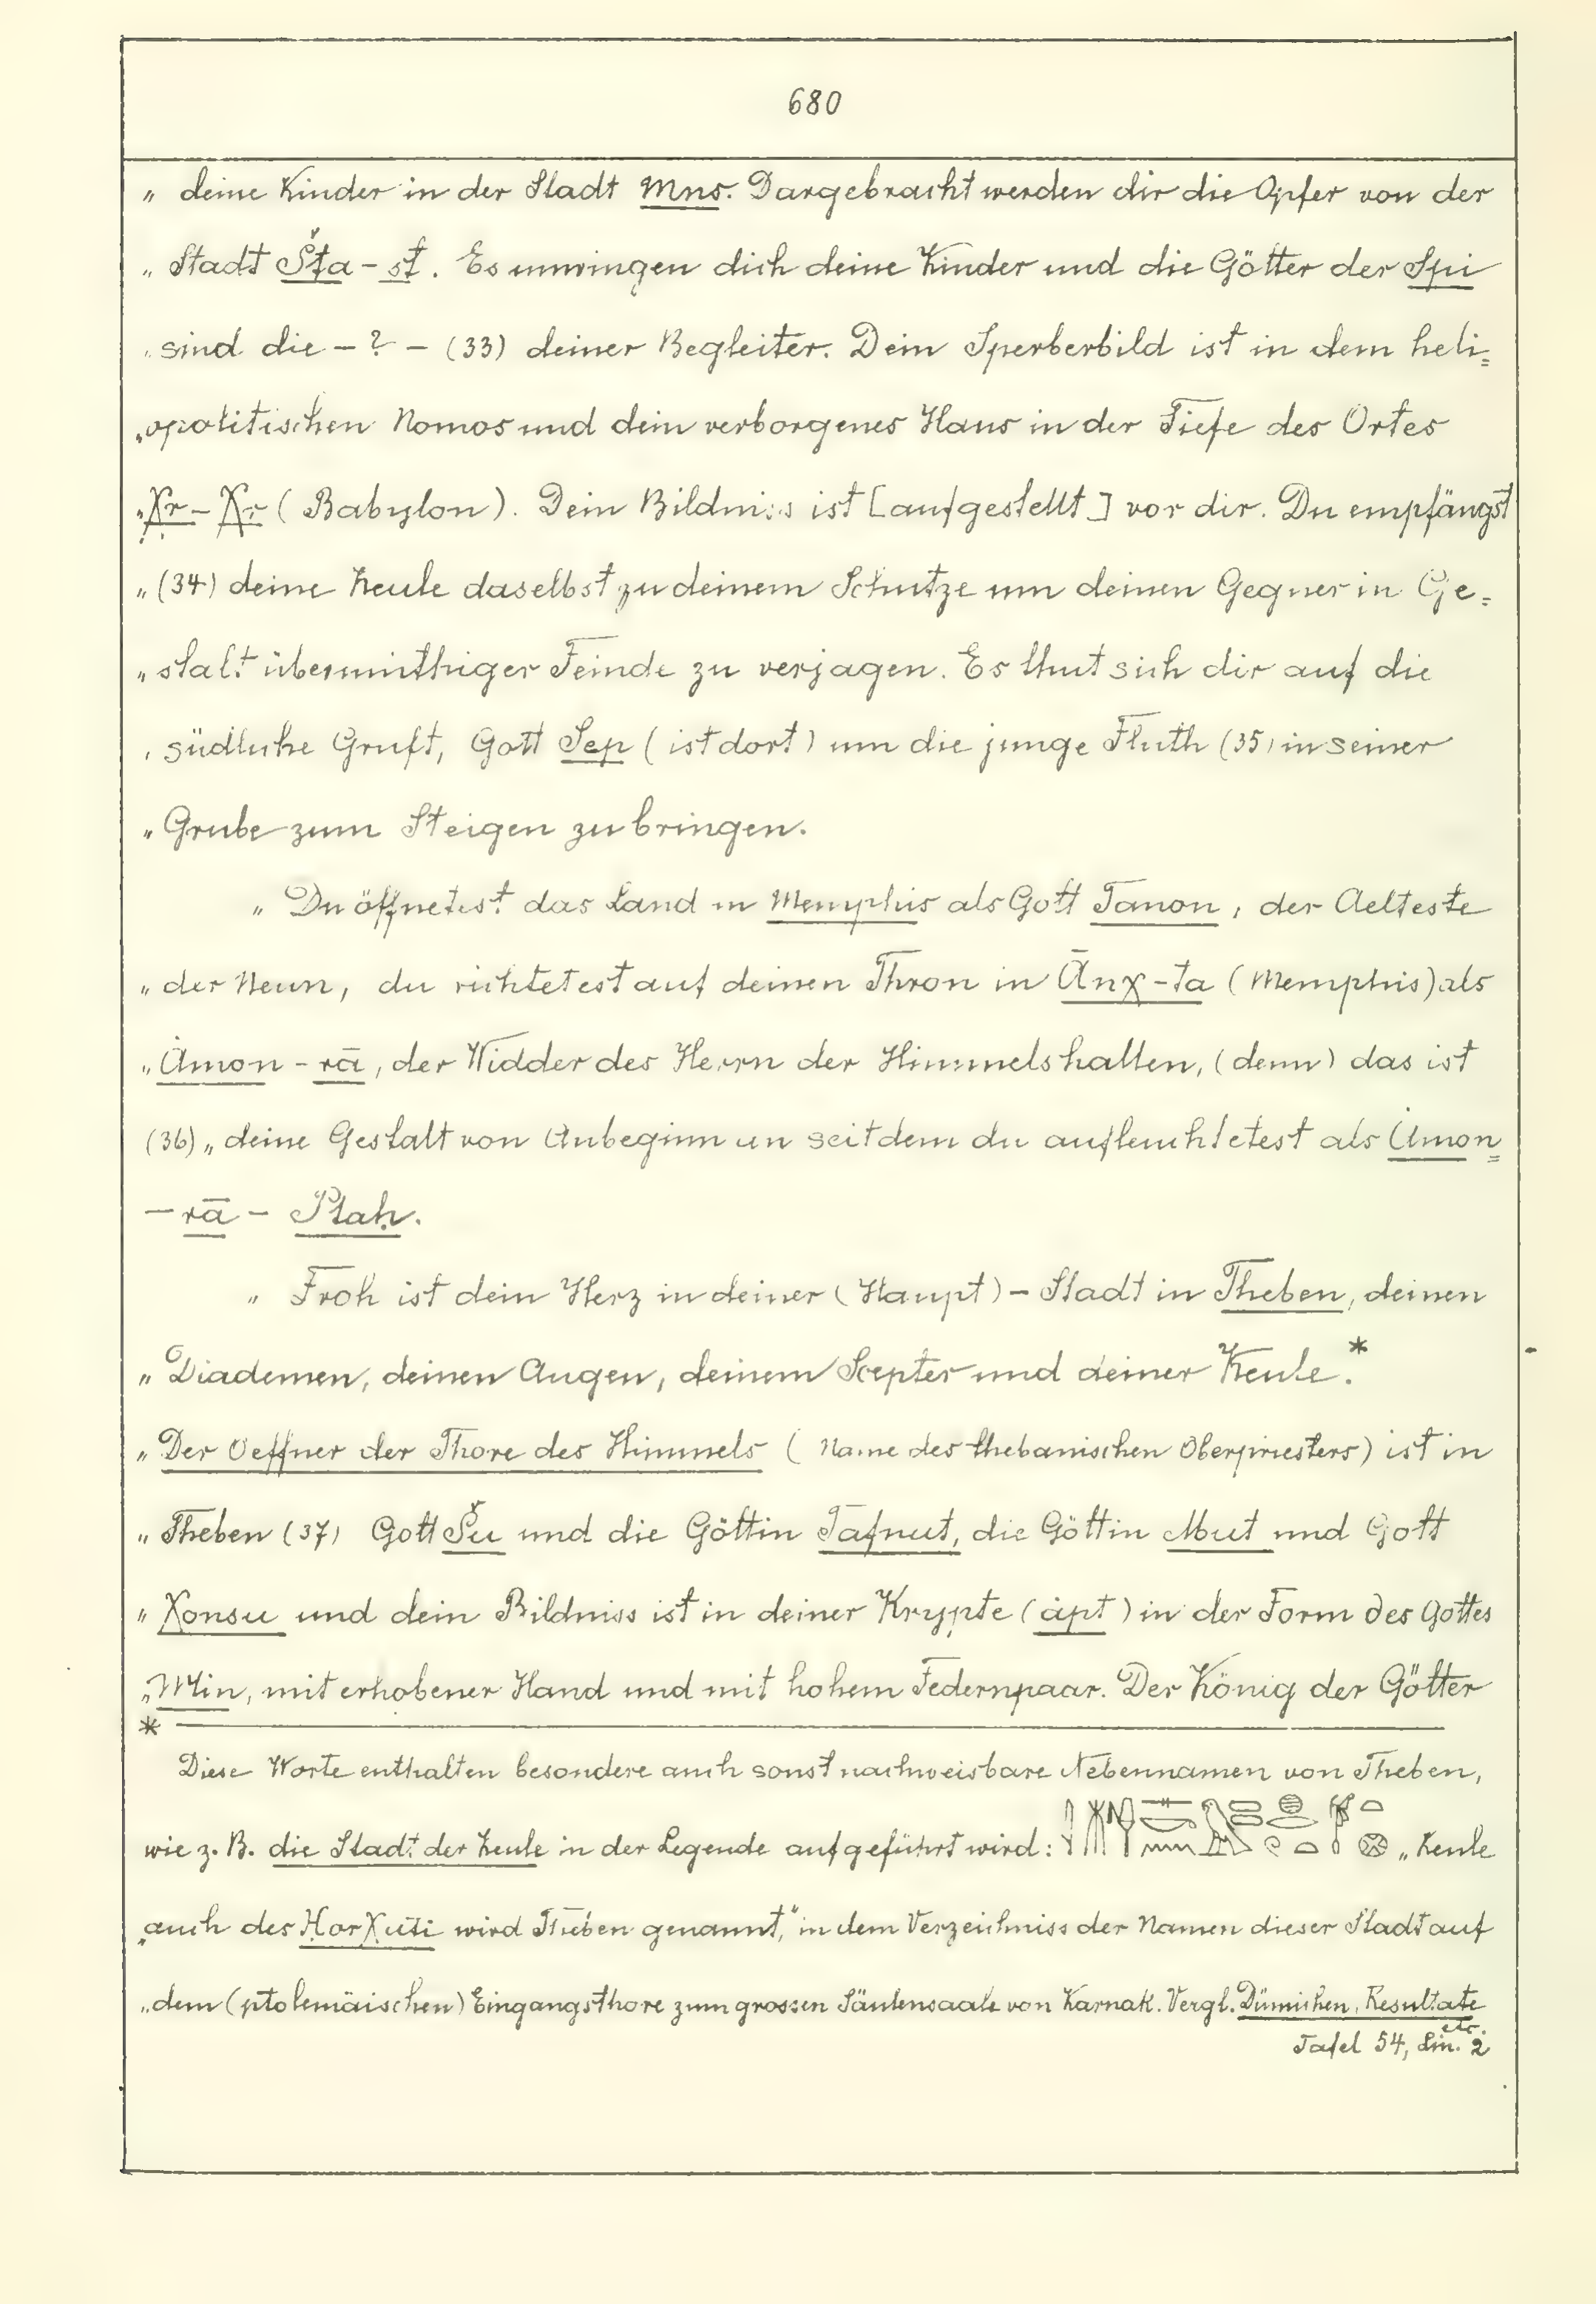 680
„ deine Kinder in der Stadt Mns. Dargebracht werden dir die Opfer von der
„ Stadt Šta-st. Es umringen dich deine Kinder und die Götter der Spi
„ sind die – ? – (33) deiner Begleiter. Dein Sperberbild ist in dem heli=
„opolitischen Nomos und dein verborgenes Haus in der Tiefe des Ortes
„Xr-Xr (Babylon). Dein Bildniss ist [aufgestellt] vor dir. Du empfängst
„ (34) deine Keule daselbst zu deinem Schutze um deinen Gegner in Ge=
„ stalt übermüthiger Feinde zu verjagen. Es thut sich dir auf die
„ südliche Gruft, Gott Sep (ist dort) um die junge Fluth (35) in seiner
„ Grube zum Steigen zu bringen.
„ Du öffnetest das Land in Memphis als Gott Tanon, der Aelteste
„ der Neun, du richtetest auf deinen Thron in Ānχ-ta (Memphis) als
„ Åmon-rā, der Widder des Herrn der Himmelshallen, (denn) das ist
(36) „ deine Gestalt von Anbeginn an seitdem du aufleuchtetest als Åmon=
-rā- Ptaḥ.
„ Froh ist dein Herz in deiner (Haupt)-Stadt in Theben, deinen
„ Diademen, deinen Augen, deinem Scepter und deiner Keule.*
„ Der Oeffner der Thore des Himmels (Name des thebanischen Oberpriesters) ist in
„ Theben (37) Gott Šu und die Göttin Tafnut, die Göttin Mut und Gott
„ Xonsu und dein Bildniss ist in deiner Krypte (åpt) in der Form des Gottes
„ Min, mit erhobener Hand und mit hohem Federnpaar. Der König der Götter
*
Diese Worte enthalten besondere auch sonst nachweisbare Nebennamen von Theben,
wie z. B. die Stadt der Keule in der Legende aufgeführt wird: „Keule
„auch des HorXuti wird Theben genannt," in dem Verzeichniss der Namen dieser Stadt auf
„dem (ptolemäischen) Eingangsthore zum grossen Säulensaale von Karnak. Vergl. Dümichen, Resultate
etc.
Tafel 54, Lin. 2